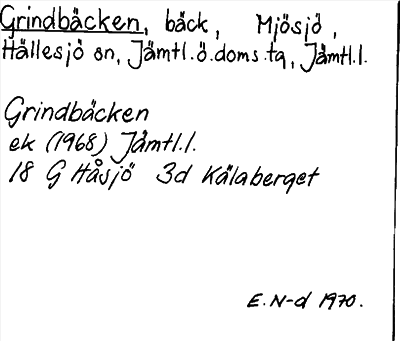 Grindbäcken, bäck, Mjösjö,
Hällesjö sn, Jämtl.ö.doms.tg, Jämtl.l.
Grindbäcken
ek (1968) Jämtl.l.
18 G Håsjö 3d Kälaberget
E.N-d 1970.